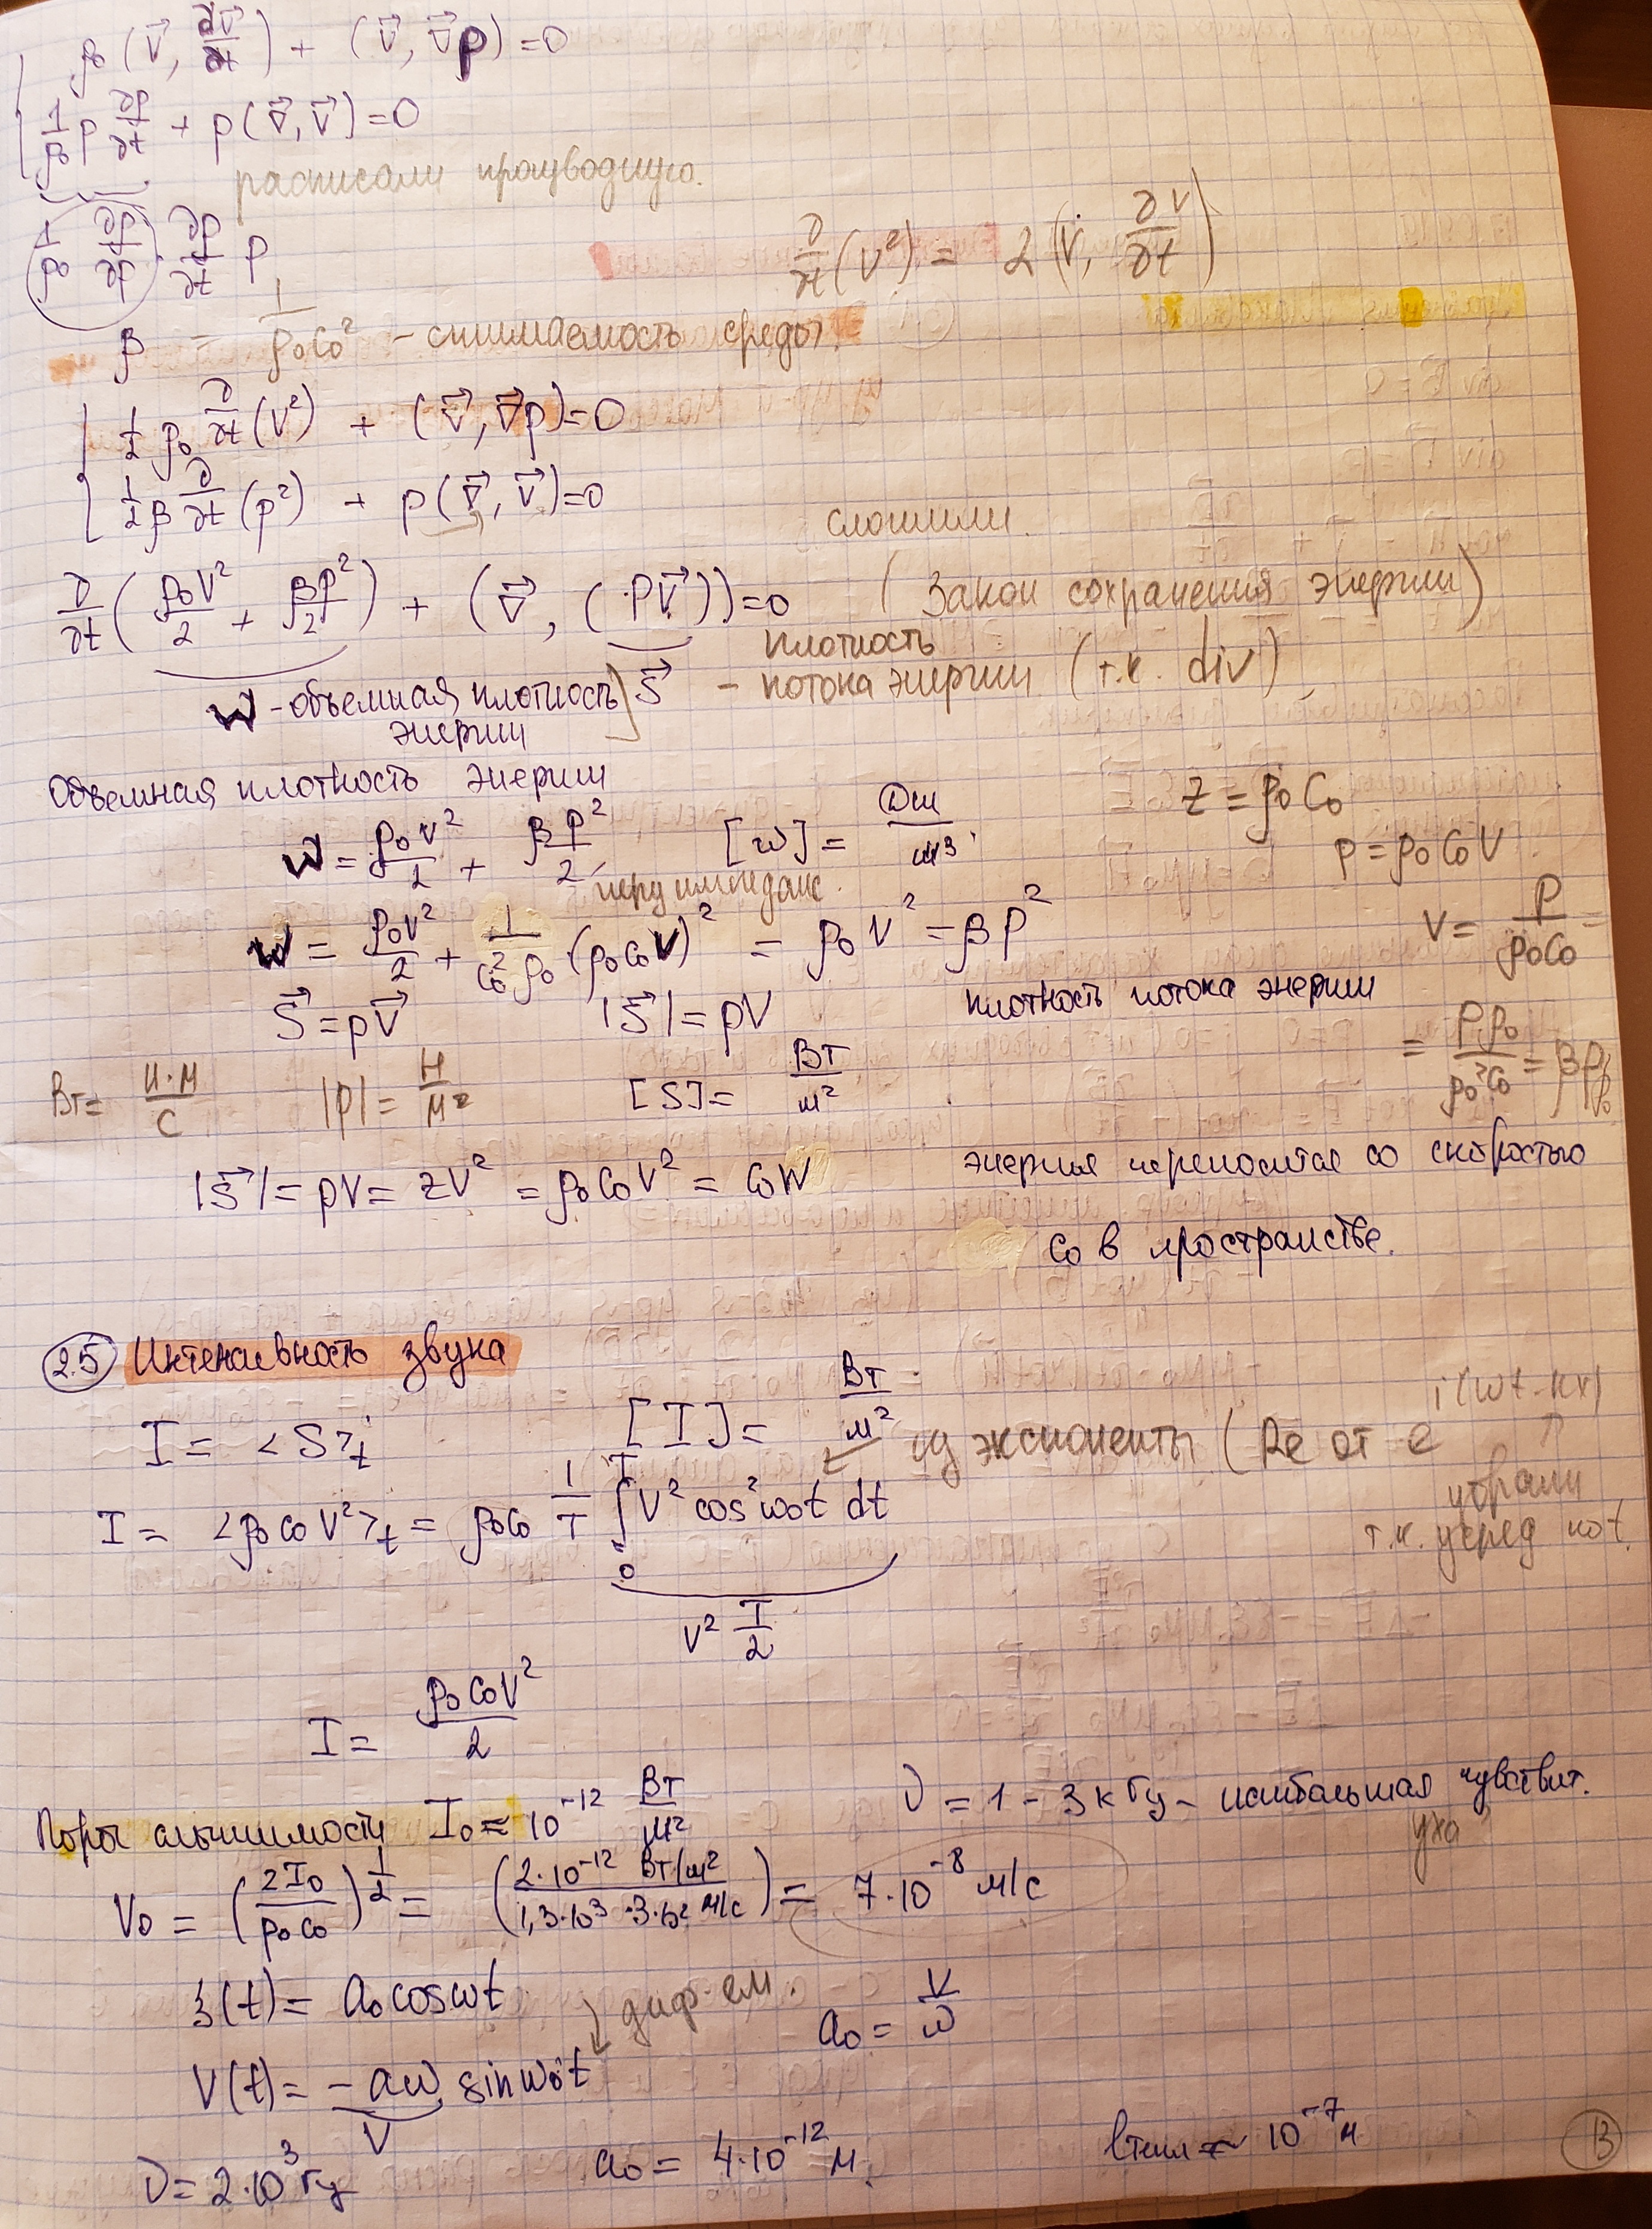 ρ₀(v⃗, ∂v⃗/∂t) + (v⃗, ∇⃗p) = 0
1/ρ₀ p ∂ρ/∂t + p(∇⃗, v⃗) = 0
расписали производную.
(1/ρ₀ ∂ρ/∂p) ∂p/∂t p
∂/∂t (v²) = 2(v, ∂v/∂t)
β = 1/ρ₀c₀² – сжимаемость среды.
1/2 ρ₀ ∂/∂t (v²) + (v⃗, ∇⃗p) = 0
1/2 β ∂/∂t (p²) + p(∇⃗, v⃗) = 0
сложили.
∂/∂t (ρ₀v²/2 + βp²/2) + (∇⃗, (pv⃗)) = 0 (Закон сохранения энергии)
w – объемная плотность энергии
S⃗ – плотность потока энергии (т.к. div)
Объемная плотность энергии
w = ρ₀v²/2 + βp²/2 [w] = Дж/м³
z = ρ₀c₀
p = ρ₀c₀v
через импеданс.
w = ρ₀v²/2 + 1/c₀²ρ₀ (ρ₀c₀v)² = ρ₀v² = βp²
v = p/ρ₀c₀ =
S⃗ = pv⃗ |S⃗| = pv плотность потока энергии
= pρ₀/ρ₀²c₀ = βp
Вт = Н·м/с |p| = Н/м² [S] = Вт/м²
|S⃗| = pv = zv² = ρ₀c₀v² = c₀w энергия переносится со скоростью
c₀ в пространстве.
2.5 Интенсивность звука
I = <S>t [I] = Вт/м²
из экспоненты (Re от e^i(ωt-kx)
убрали
т.к. усред по t.
I = <ρ₀c₀v²>t = ρ₀c₀ 1/T ∫₀ᵀ v² cos²ω₀t dt
v² T/2
I = ρ₀c₀v²/2
Порог слышимости I₀ = 10⁻¹² Вт/м²
ν = 1 - 3 кГц – наибольшая чувствит.
уха
v₀ = (2I₀/ρ₀c₀)^1/2 = (2·10⁻¹² Вт/м² / 1,3·10³ ·3·10² м/с) = 7·10⁻⁸ м/с
ξ(t) = a₀cosωt
диф-ем.
a₀ = v/ω
v(t) = –aω sinω₀t
v
ν = 2·10³ Гц a₀ = 4·10⁻¹² м. lтепл ~ 10⁻⁷ м
13